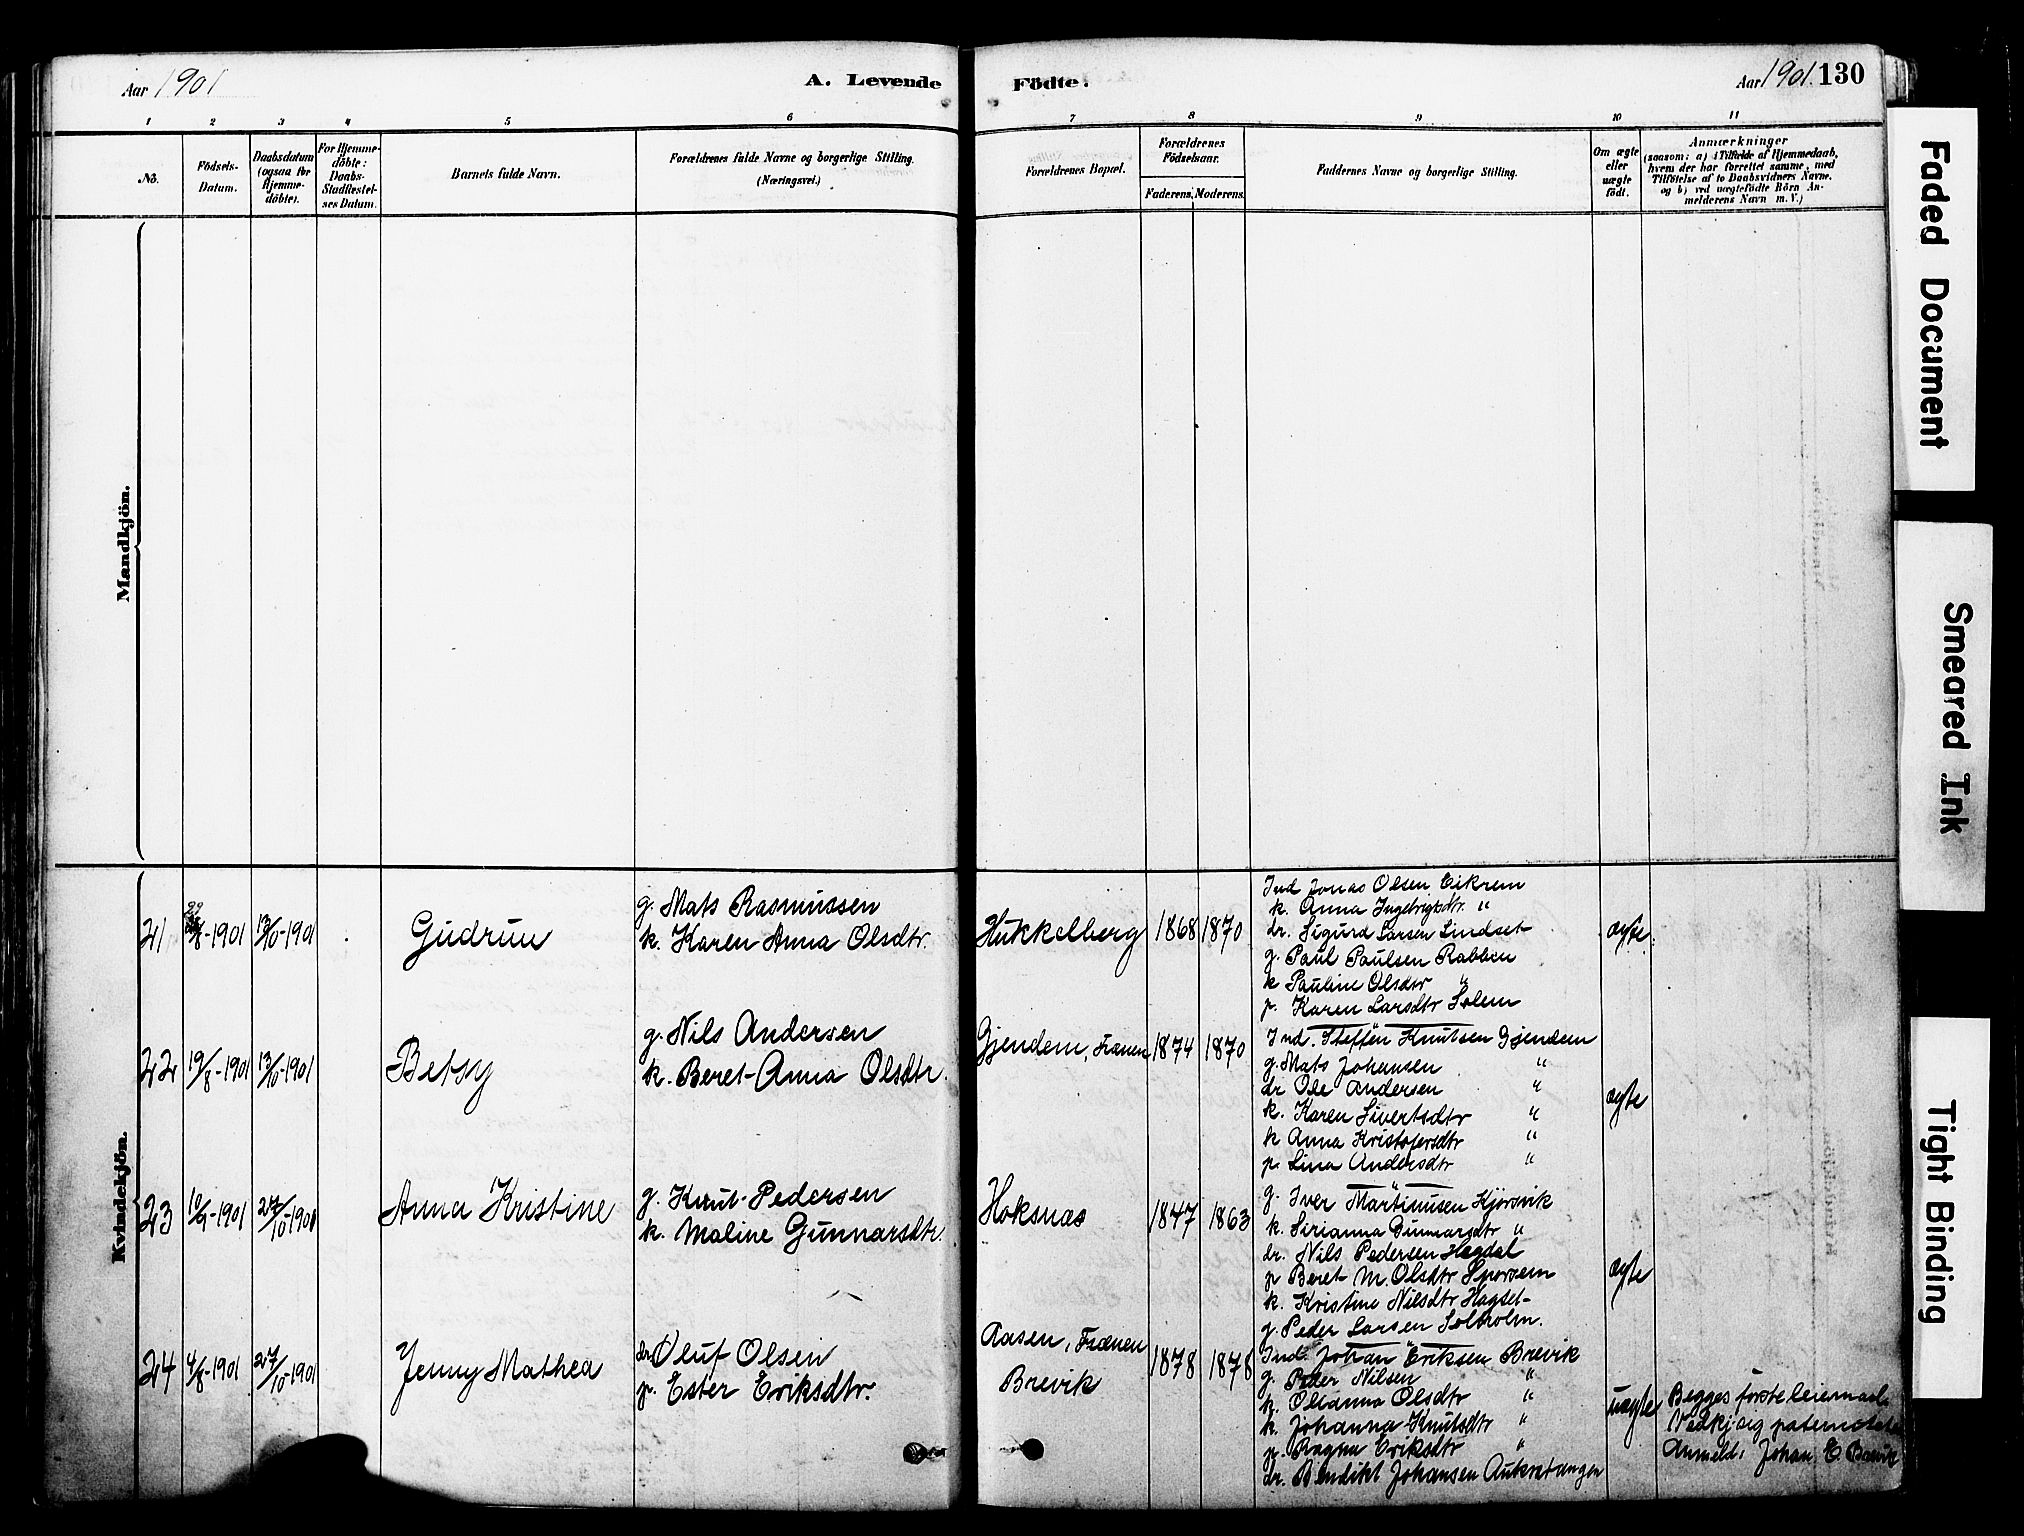 Aar 1901
A. Levende Födte.
Aar 1901. 130
1 2 3 4 5 6 7 8 9 10 11
No.
Födsels-
Datum.
Daabsdatum
(ogsaa for
Hjemme-
döbte).
For Hjemme-
döbte:
Daabs-
Stadfæstel-
ses Datum.
Barnets fulde Navn.
Forældrenes fulde Navne og borgerlige Stilling.
(Næringsvei.)
Forældrenes Bopæl.
Forældrenes
Födselsaar.
Faderens. Moderens.
Faddernes Navne og borgerlige Stilling.
Om ægte
eller
uægte
födt.
Anmærkninger
(saasom: a) i Tilfælde af Hjemmedaab,
hvem der har forrettet samme, med
Tilföielse af to Daabsvidners Navne,
og b) ved uægtefödte Börn An-
melderens Navn m. V.)
Mandkjön.
Kvindekjön.
21
/8-1901
13/10-1901
Gudrun
g. Mats Rasmussen
k. Karen Anna Olsdtr.
Hukkelberg
1868
1870
Ind Jonas Olsen Eikrem
k. Anna Ingebrigtsdtr. "
dr. Sigurd Larsen Lindset
g. Paul Paulsen Rabben
k Pauline Olsdtr "
p. Karen Larsdtr Solem
ægte.
22
19/8-1901
13/10-1901
Betsy
g. Nils Andersen
k. Beret-Anna Olsdtr.
Gjendem, Frænen
1874
1870
Ind. Steffen Knutsen Gjendem
g. Mats Johansen "
dr Ole Andersen "
k. Karen Sivertsdtr "
k Anna Kristofersdtr "
p. Lina Andersdtr "
ægte
23
10/9-1901
27/10-1901
Anna Kristine
g. Knut Pedersen
k. Maline Gunnarsdtr.
Hoksnas
1847
1863
g. Iver Martinusen Kjörsvik
k. Sirianna Gunnarsdtr "
dr. Nils Pedersen Hagdal
p Beret M. Olsdtr Sporsem
k. Kristine Nilsdtr Hagset
g. Peder Larsen Solholm.
ægte
24
4/8-1901
27/10-1901
Jenny Mathea
dr Oluf Olsen
p. Ester Eriksdtr.
Aasen, Frænen
Brevik
1878
1878
Ind. Johan Eriksen Brevik
g. Peder Nilsen "
k. Olianna Olsdtr "
k. Johanna Knutsdtr "
p. Ragna Eriksdtr "
dr. Bendikt Johansen Aukratangen
uægte
Begges förste leiermaal.
Vedkj sig
Anmeld: Johan E. Brevik
Faded Document
Smeared Ink
Tight Binding